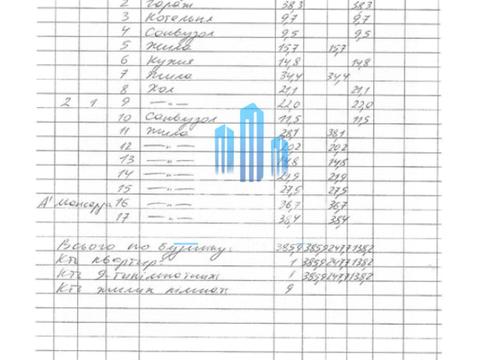 2 Гараж 38,3 38,3
3 Котельня 9,7 9,7
4 Санвузол 9,5 9,5
5 Жила 15,7 15,7
6 Кухня 14,8 14,8
7 Жила 34,4 34,4
8 Хол 21,1 21,1
2 1 9 —„— 22,0 22,0
10 Санвузол 11,5 11,5
11 Жила 38,1
12 —„— 20,2
13 —„— 14,8
14 —„— 21,9 21,9
15 —„— 27,5 27,5
А' Мансарда 16 —„— 36,7 36,7
17 —„— 38,4 38,4
Всього по будинку: 385,9 385,9 247,7 138,2
К-ть квартир 1 385,9 247,7 138,2
К-ть 9-тикімнатних 1 385,9 247,7 138,2
К-ть жилих кімнат 9